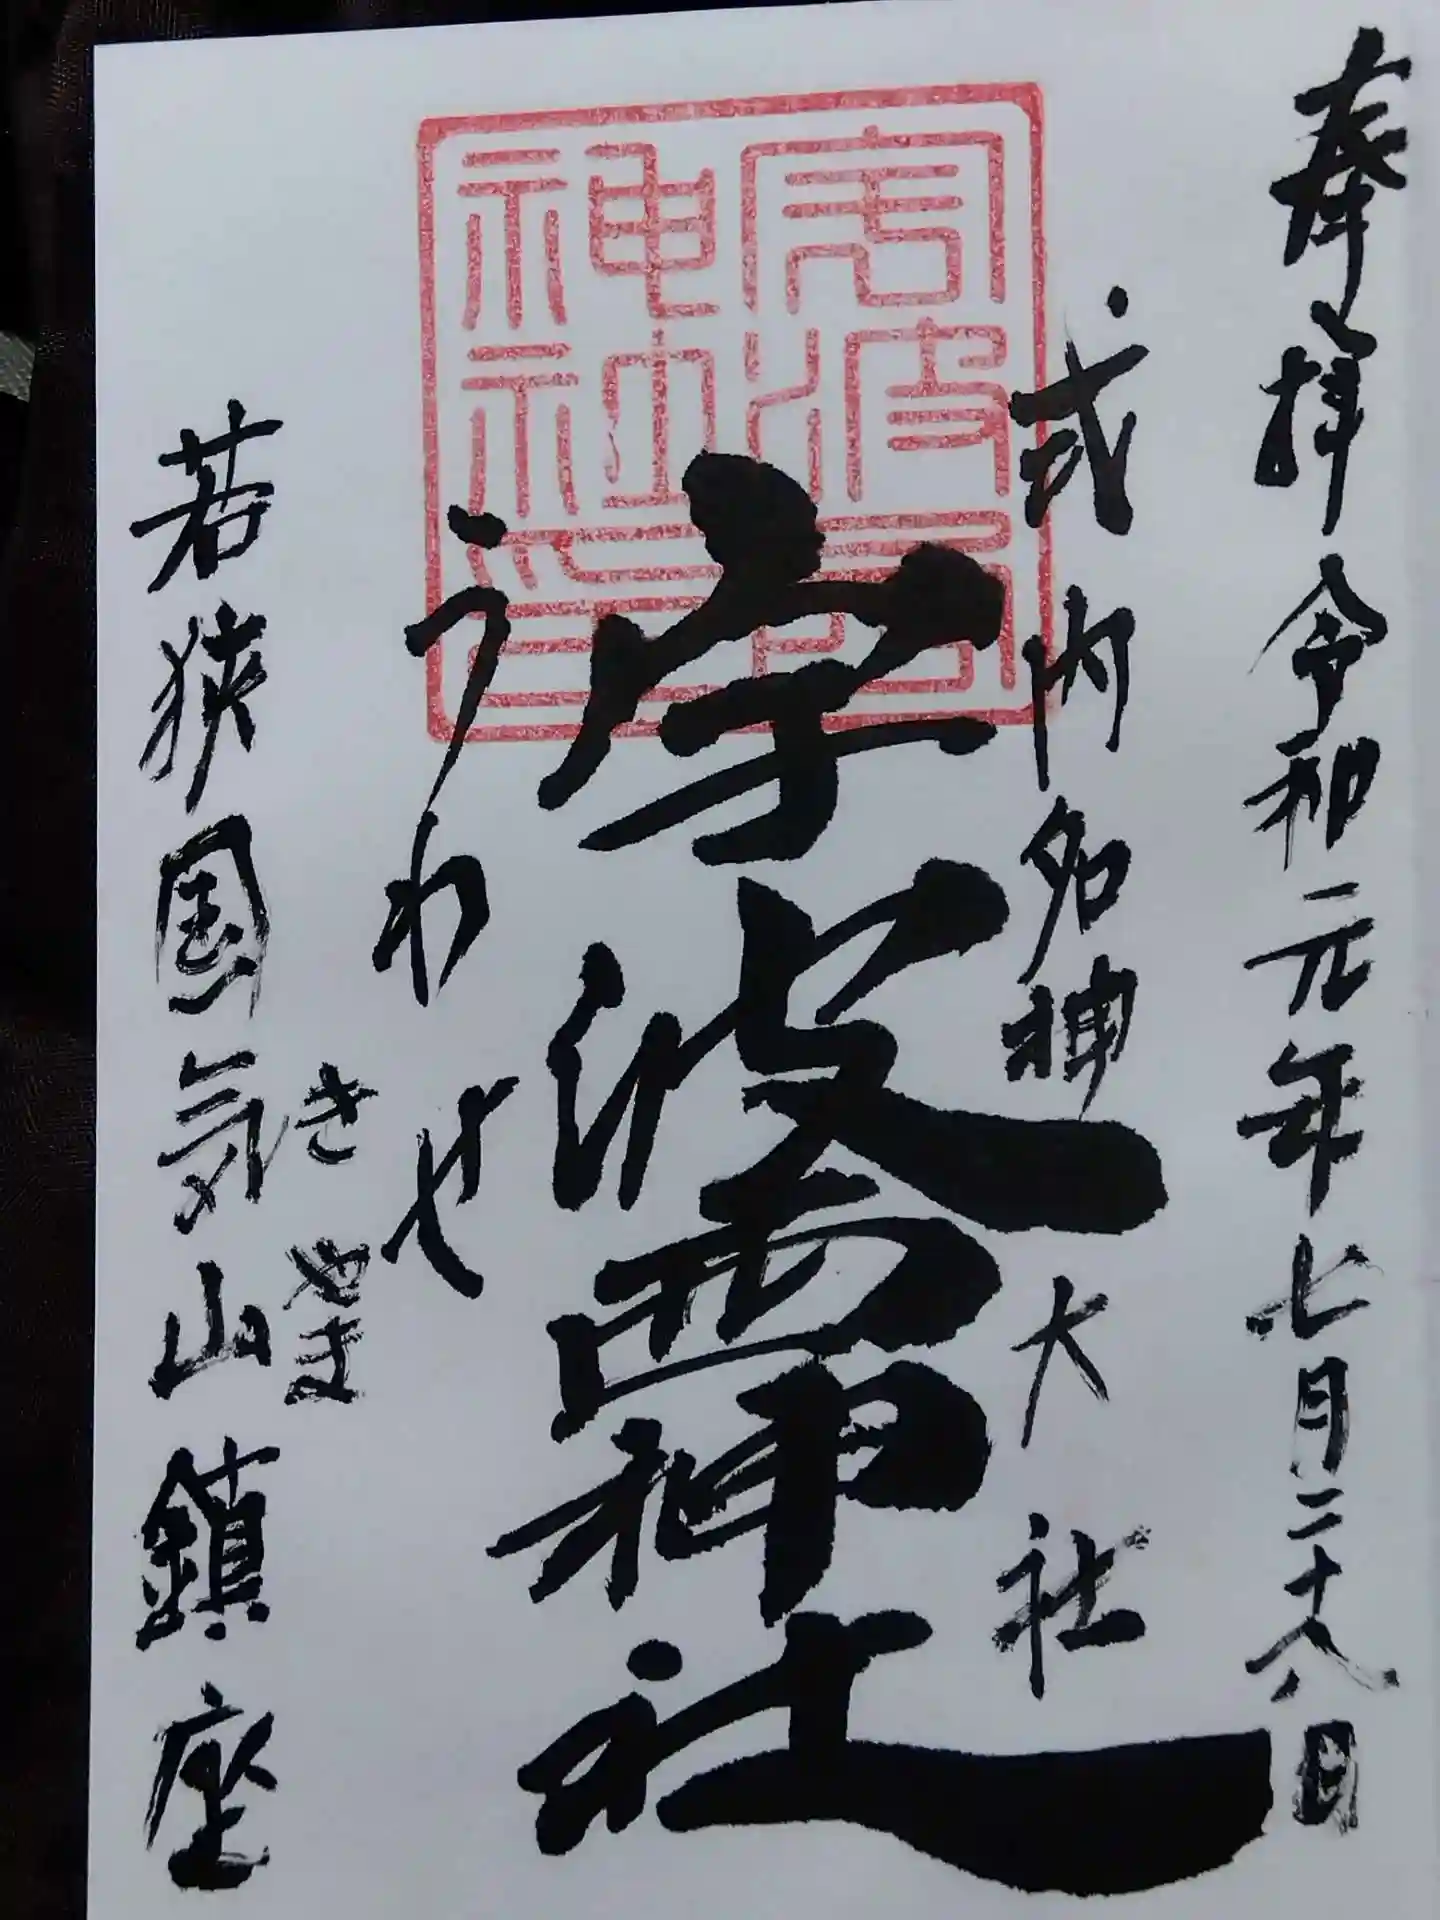 奉拝 令和元年七月二十八日
式内名神大社
宇波西神社
うわせ
きやま
若狭国気山鎮座